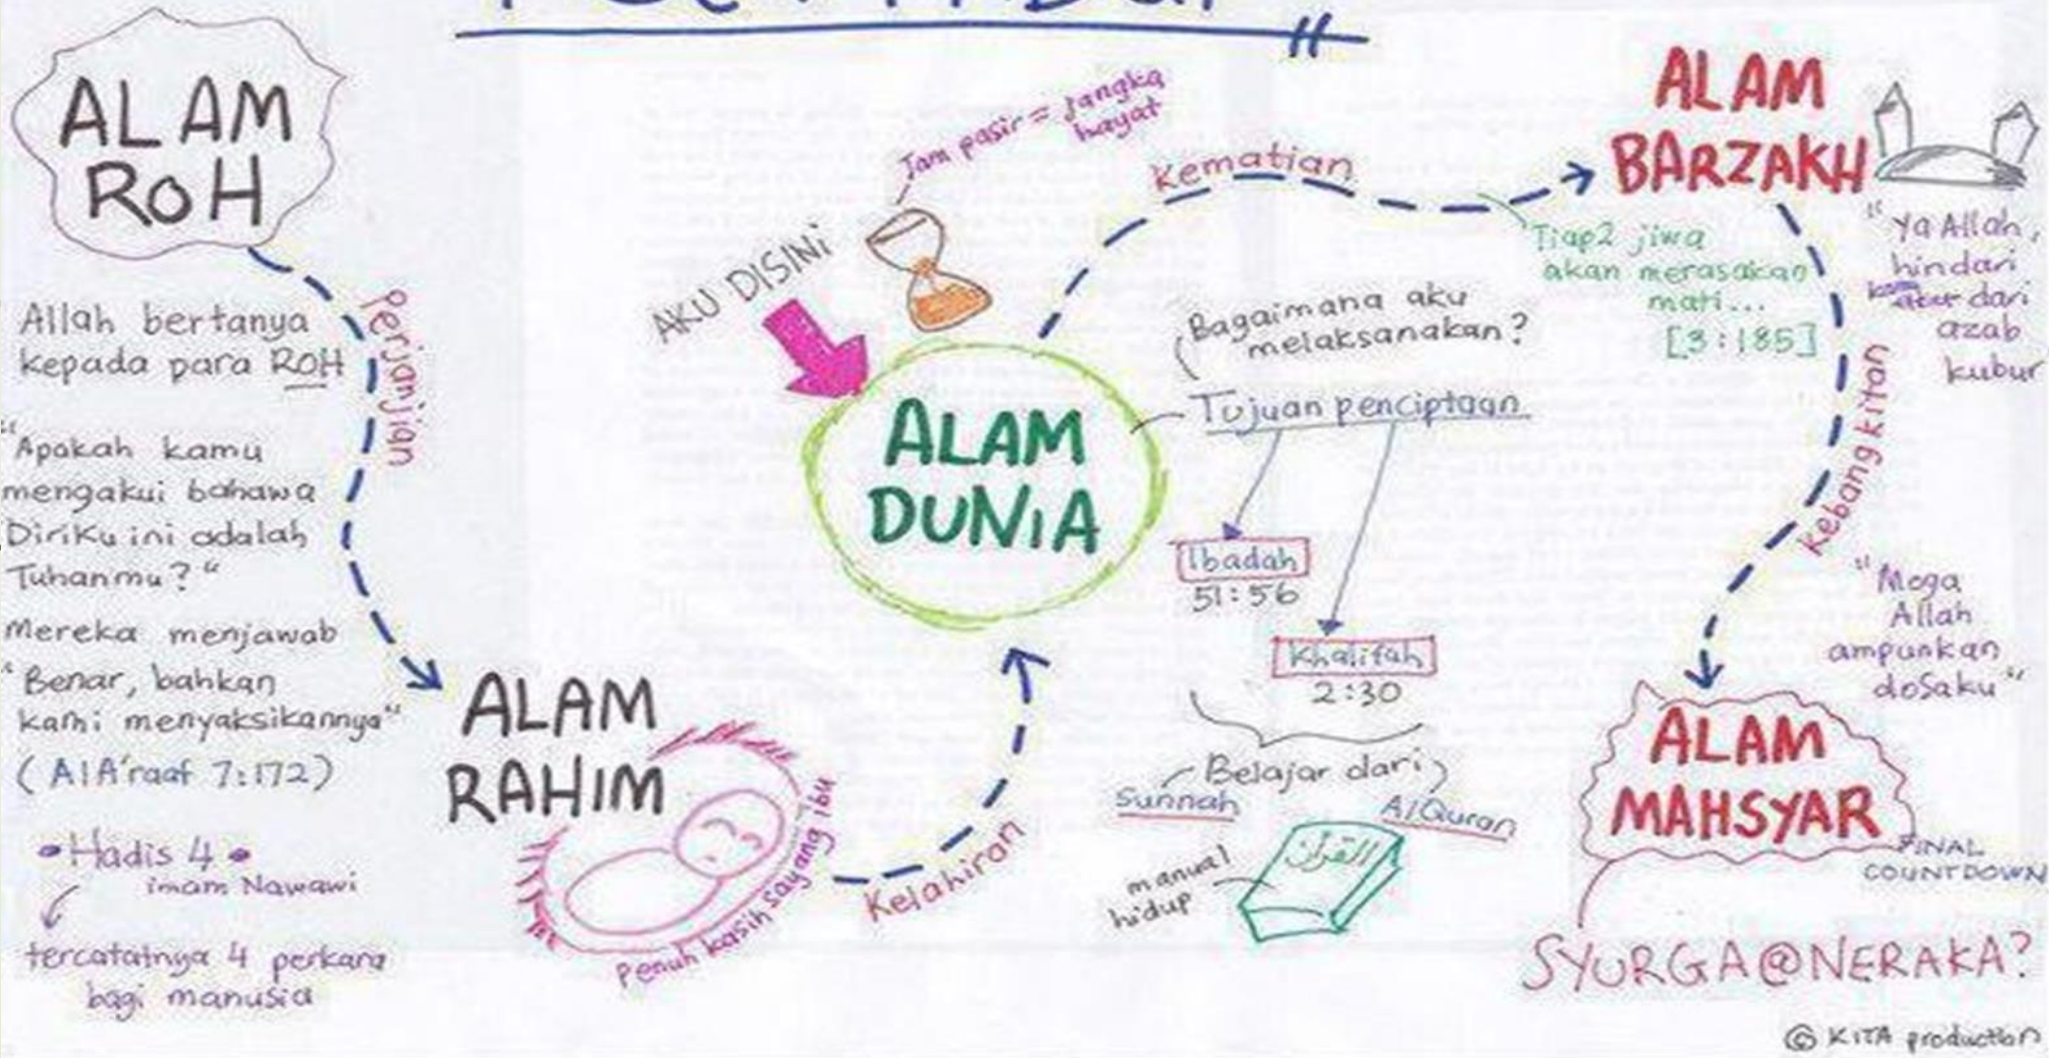 ALAM
ROH
Allah bertanya
kepada para ROH
"Apakah kamu
mengakui bahawa
Diriku ini adalah
Tuhanmu?"
Mereka menjawab
"Benar, bahkan
kami menyaksikannya"
(Al A'raaf 7:172)
• Hadis 4 •
imam Nawawi
tercatatnya 4 perkara
bagi manusia
Perjanjian
ALAM
RAHIM
Penuh kasih sayang ibu
Kelahiran
AKU DISINI
Jam pasir = jangka
hayat
ALAM
DUNIA
Bagaimana aku
melaksanakan?
Tujuan penciptaan
Ibadah
51:56
Khalifah
2:30
Belajar dari
Sunnah
AlQuran
القرآن
manual
hidup
Kematian
Tiap2 jiwa
akan merasakan
mati...
[3:185]
ALAM
BARZAKH
"Ya Allah,
hindari
dari
azab
kubur
Kebangkitan
"Moga
Allah
ampunkan
dosaku"
ALAM
MAHSYAR
FINAL
COUNTDOWN
SYURGA@NERAKA?
© KITA production